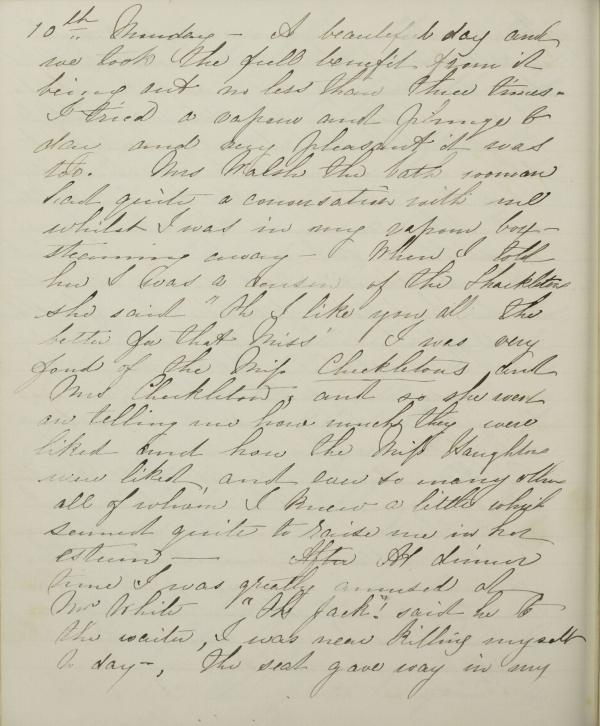 10th Monday - A beautiful day and
we took the full benefit from it
being out no less than three times -
I tried a vapour and plunge to
day and very pleasant it was
too. Mrs Walsh the bath woman
had quite a conversation with me
whilst I was in my vapour box -
steaming away - When I told
her I was a cousin of the Shackletons
she said "Oh I like you all the
better for that Miss' I was very
fond of the Miss Checkletons and
Mrs Checkleton; and so she went
on telling me how much they were
liked and how the Miss Haughtons
were liked, and ever so many others
all of whom I knew a little which
seemed quite to raise me in her
esteem - After At dinner
time I was greatly amused at
Mr White "Oh Jack!" said he to
the waiter, I was near killing myself
to day -, the seat gave way in my